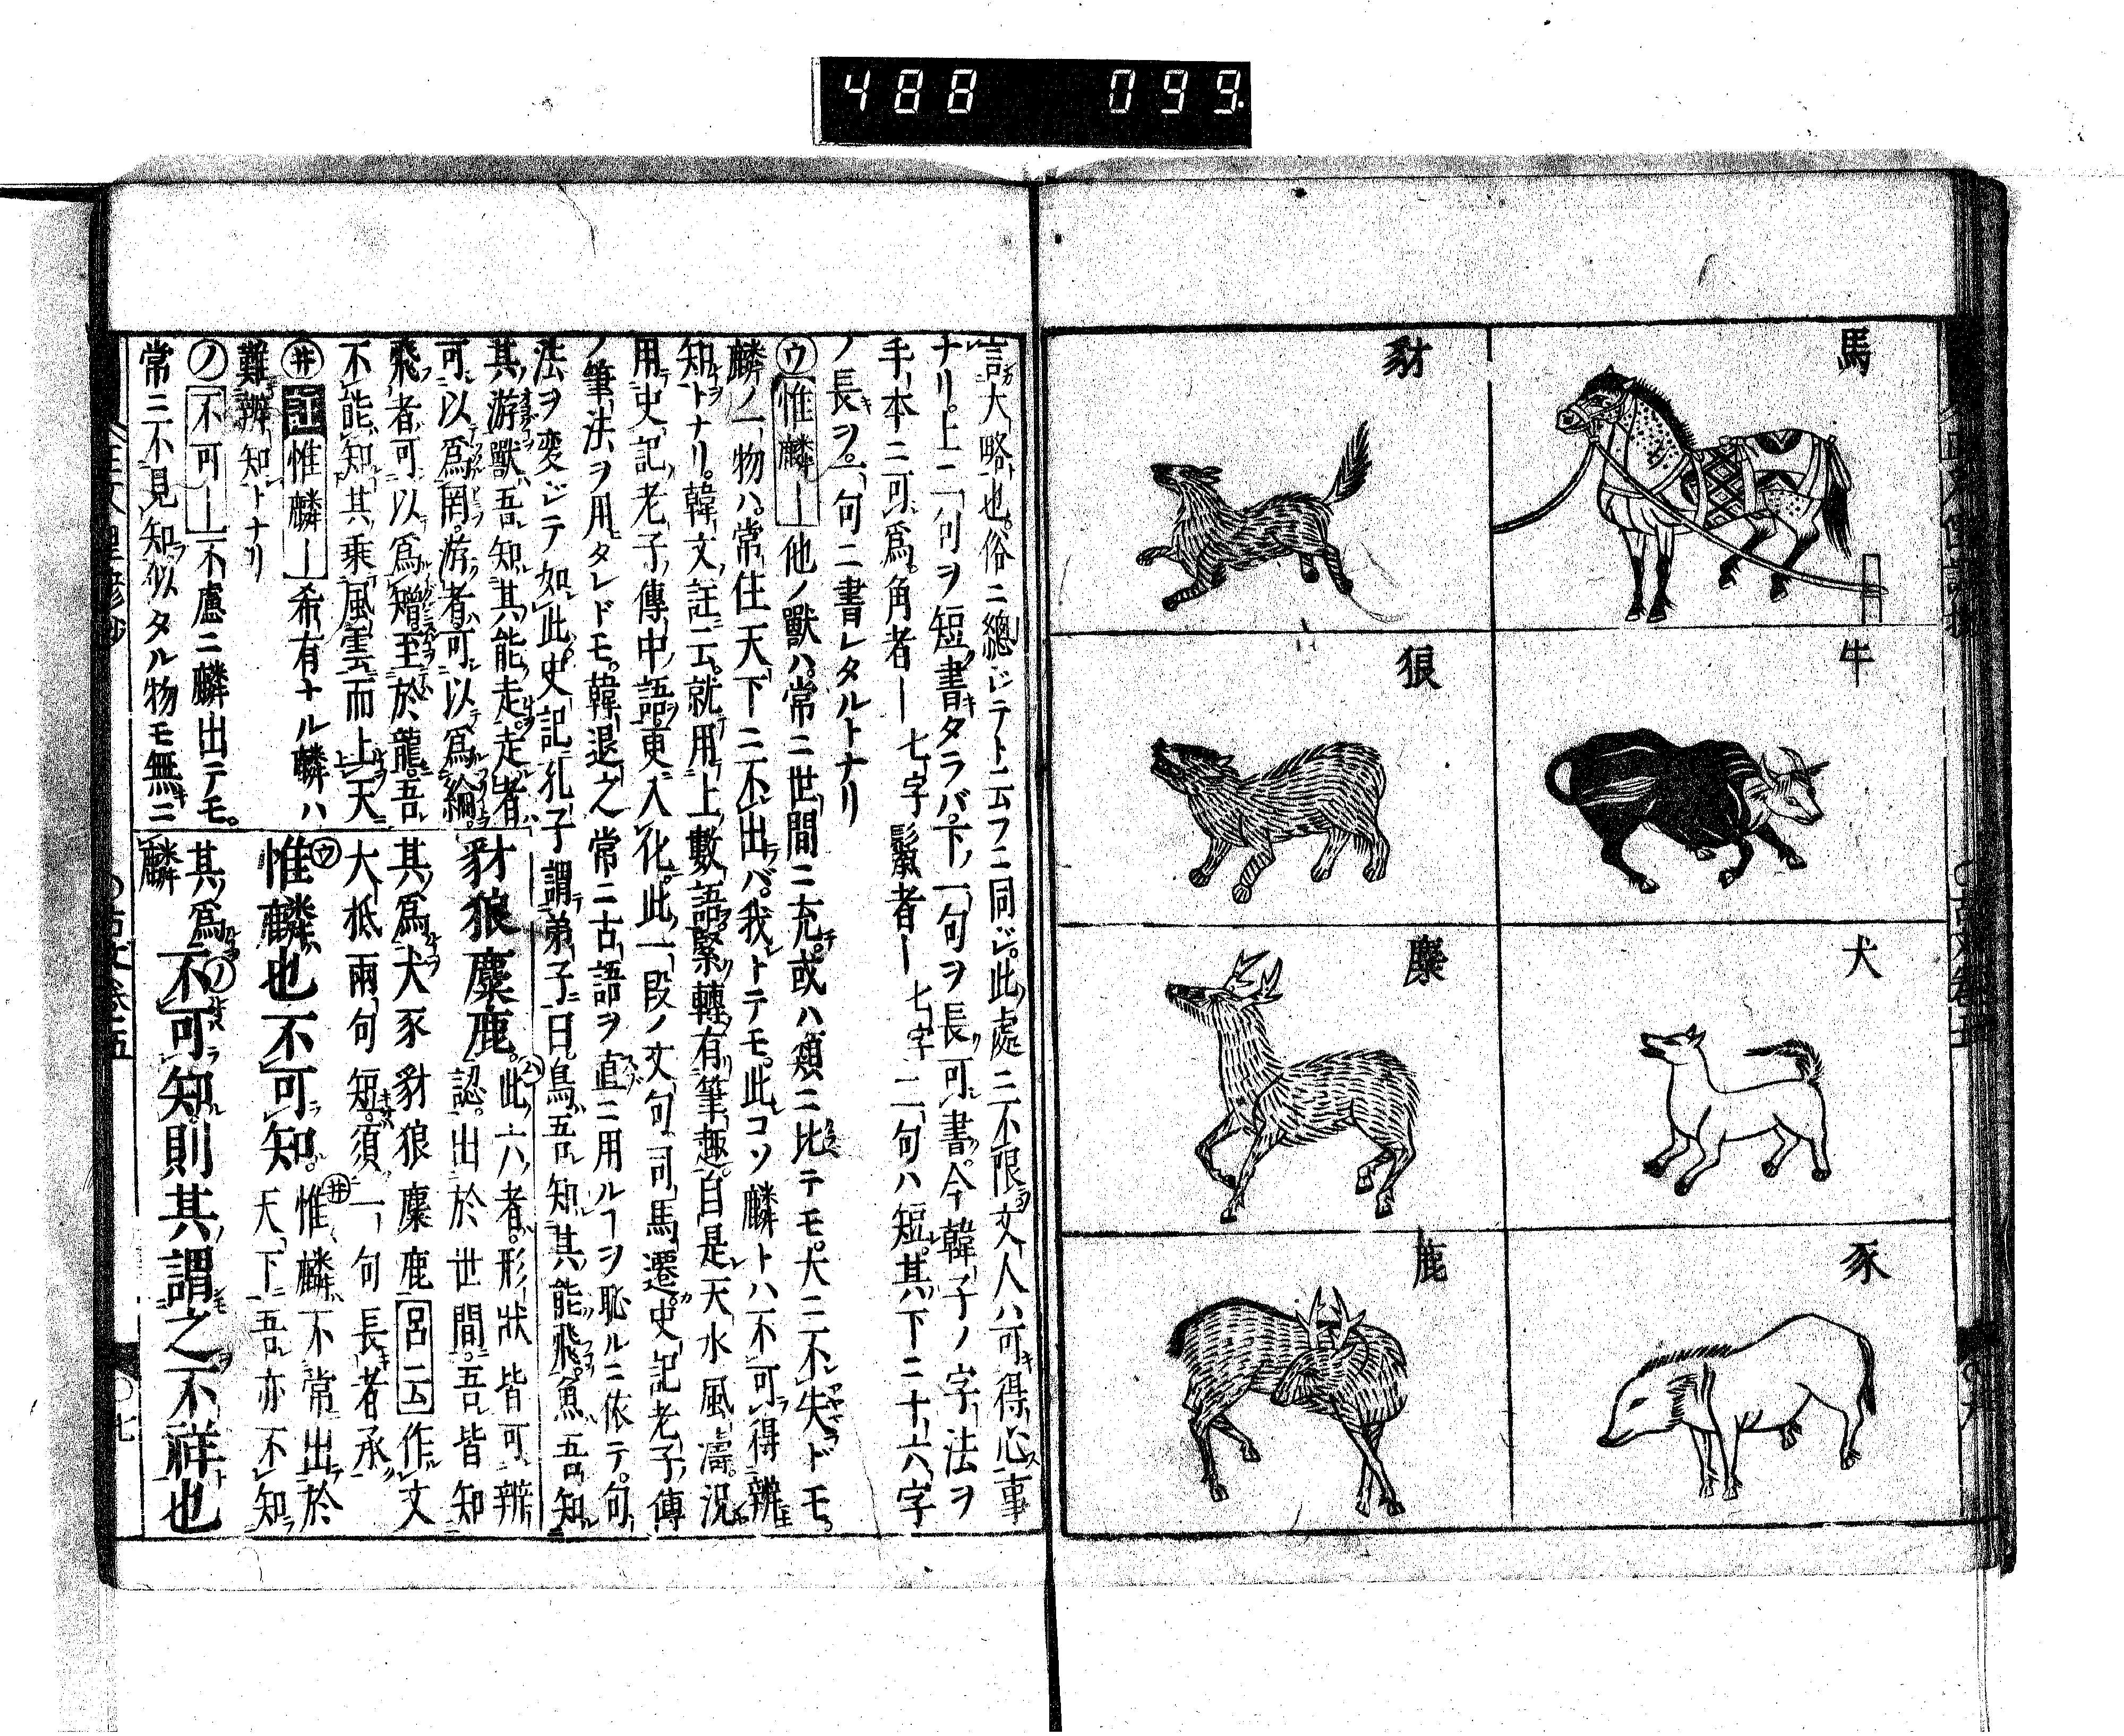 488 099
馬
牛
犬
豕
豺
狼
麋
鹿
言大略也俗ニ總ジテト云フニ同ジ。此處ニ不限文人ハ可得心事
ナリ。上二句ヲ短書タラバ。下一句ヲ長可書。今韓子ノ字法ヲ
手本ニ可爲。角者― 七字 鬣者― 七字 二句ハ短。其下ニ十六字
ノ長ヲ。一句ニ書レタルトナリ
㋒惟麟―他ノ獸ハ。常ニ世間ニ充。或ハ類ニ比テモ。大ニ不失ドモ
麟ノ一物ハ。常住天下ニ不出バ。我トテモ。此コソ麟トハ不可得辨
知トナリ。韓文註云。就用上數語緊轉有筆趣。自是天水風濤。況
用史記老子傳中語。更入化。此一段ノ文句。司馬遷。史記老子傳
ノ筆法ヲ用タレドモ。韓退之常ニ古語ヲ直ニ用ルヿヲ恥ルニ依テ。句
法ヲ変ジテ如此。史記孔子謂弟子曰。鳥吾知其能飛。魚吾知
其游。獸吾知其能走。走者
可以爲罔。游者可以爲綸。
飛者可以爲矰。至於龍。吾
不能知其乘風雲而上天
㊍註惟麟―希有ナル麟ハ
難辨知トナリ
㋨不可―不慮ニ麟出テモ。
常ニ不見知。似タル物モ無ニ
豺狼麋鹿。此六者。形狀皆可辨
認。出於世間。吾皆知
其爲犬豕豺狼麋鹿 呂云作文
大抵兩句短。須一句長者承
惟麟也不可知。惟麟不常出於
天下。吾亦不知
其爲麟 不可知。則其謂之不祥也
古文卷五
〇七